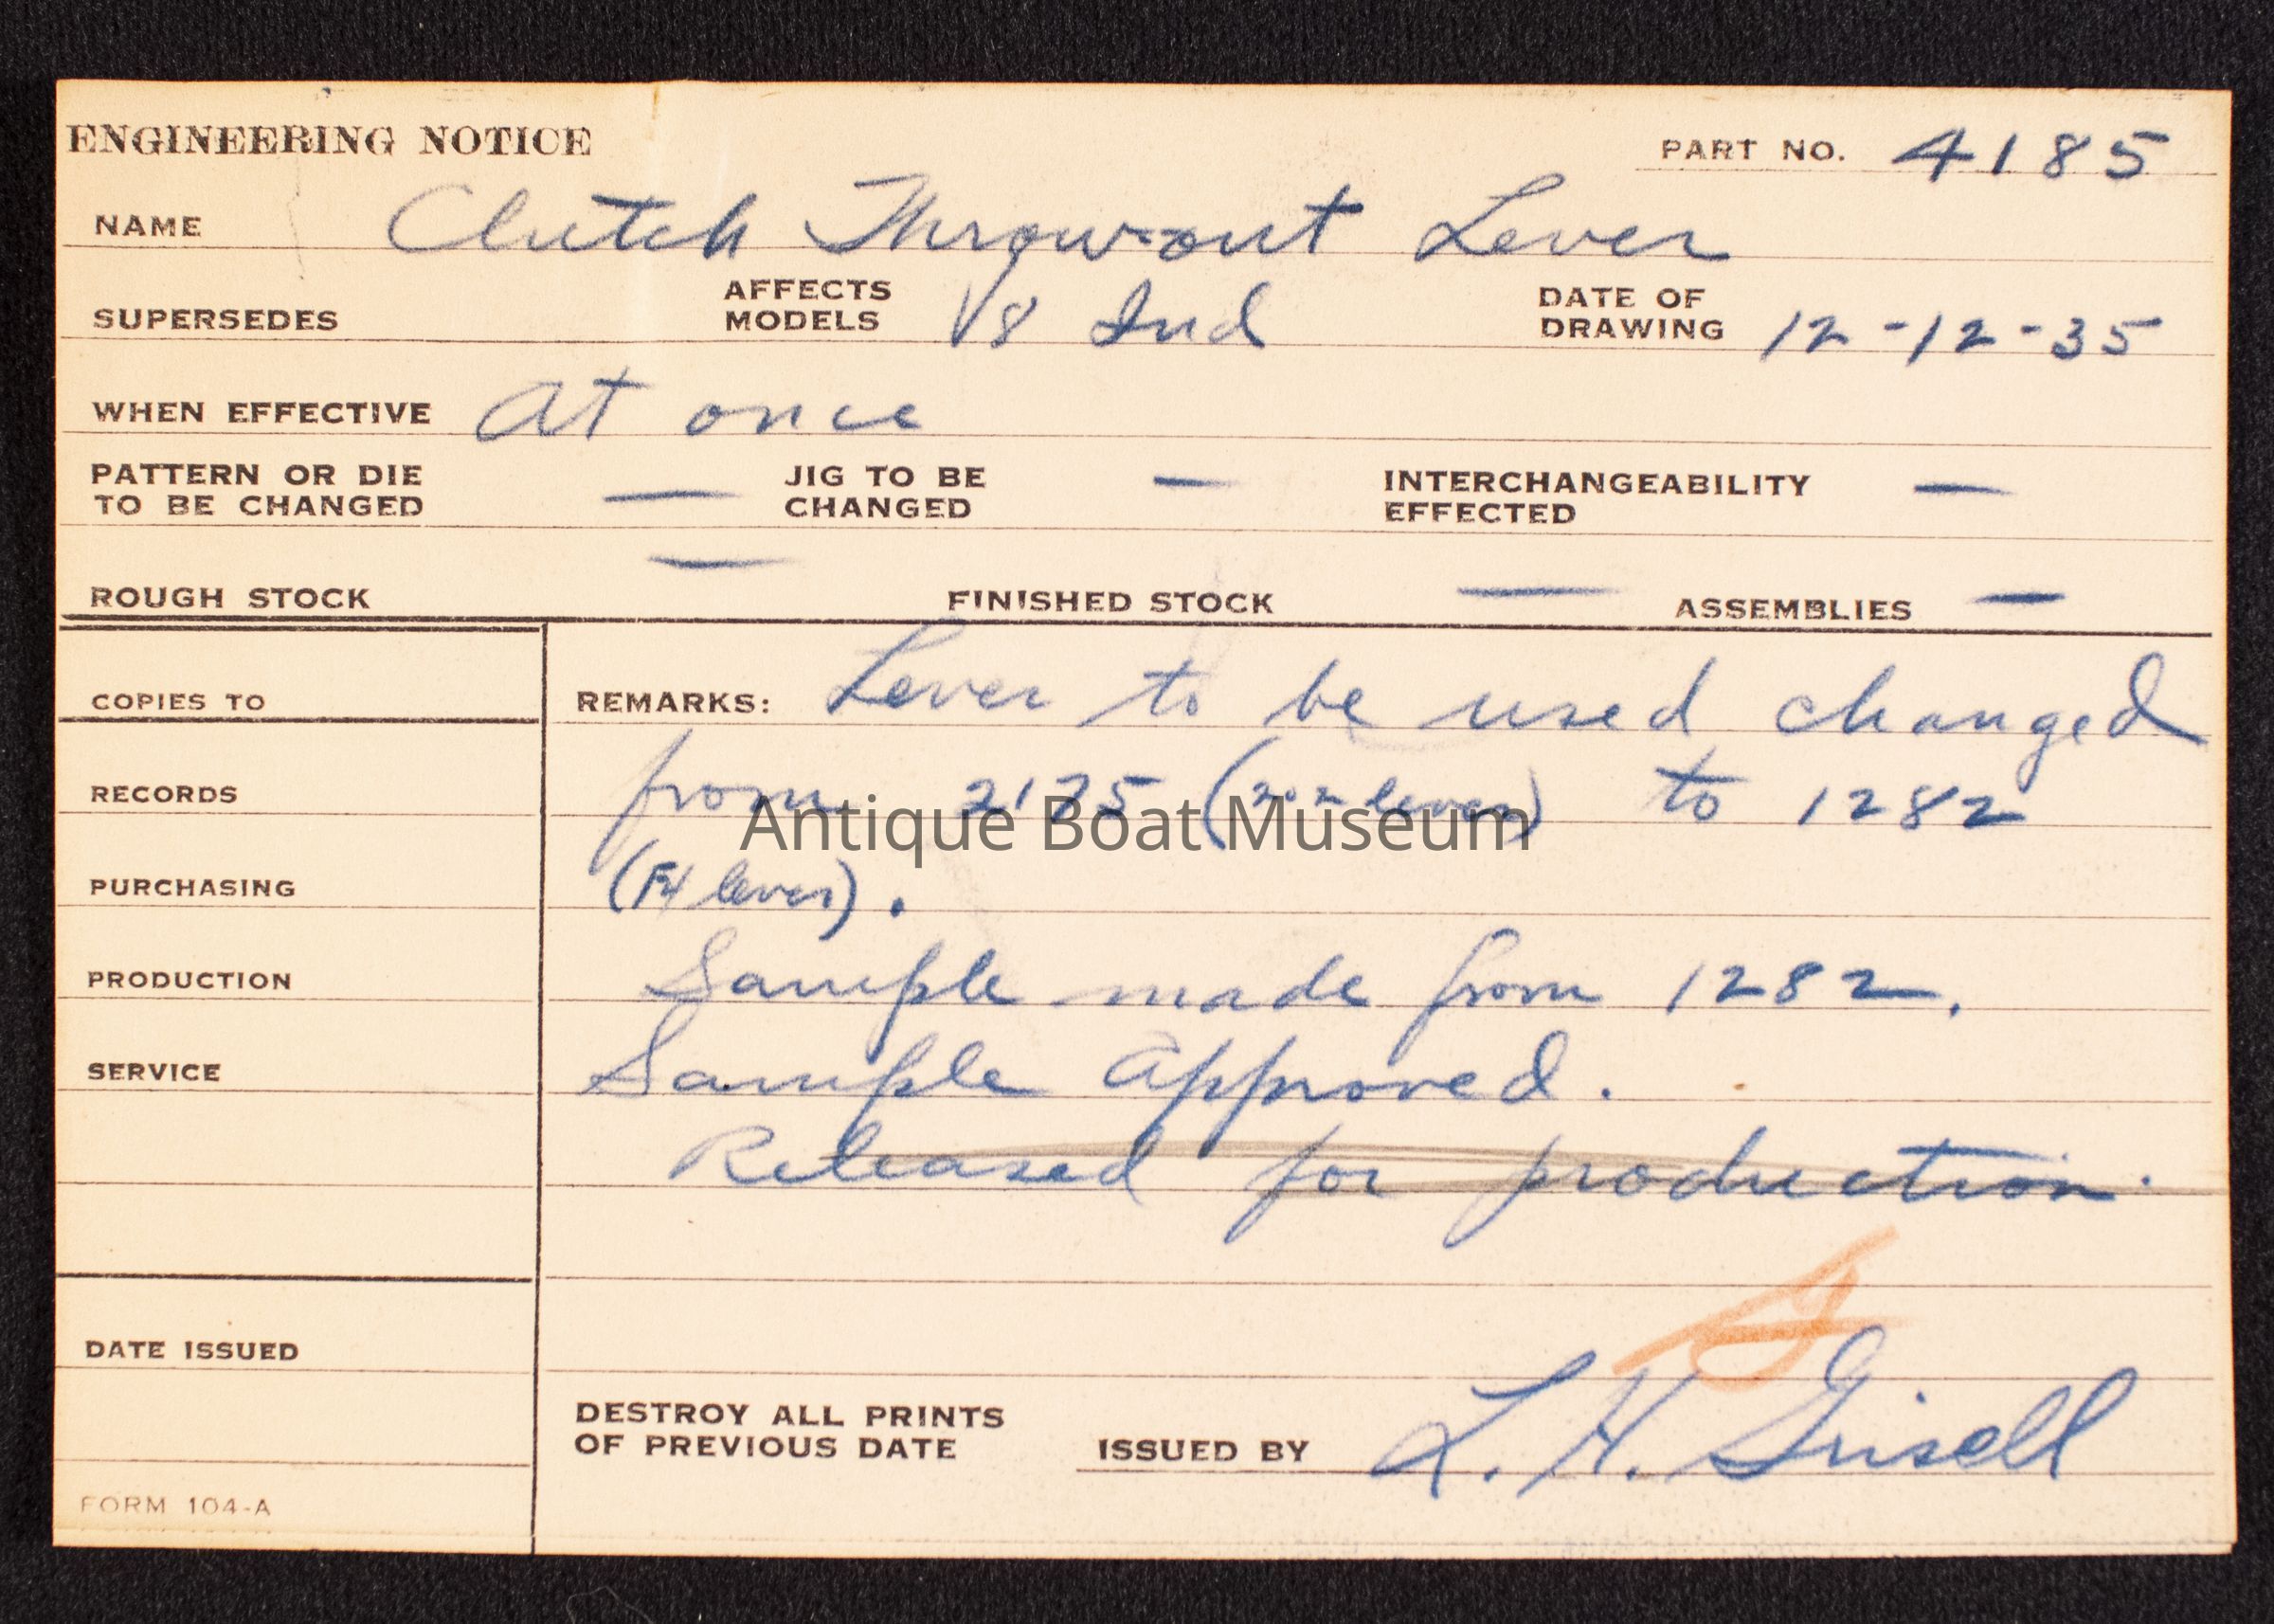 ENGINEERING NOTICE
PART NO. 4185
NAME Clutch Throw-out Lever
SUPERSEDES AFFECTS MODELS V8 Ind DATE OF DRAWING 12-12-35
WHEN EFFECTIVE At once
PATTERN OR DIE TO BE CHANGED — JIG TO BE CHANGED — INTERCHANGEABILITY EFFECTED —
ROUGH STOCK — FINISHED STOCK — ASSEMBLIES —
COPIES TO
RECORDS
PURCHASING
PRODUCTION
SERVICE
DATE ISSUED
FORM 104-A
REMARKS: Lever to be used changed
from (lever) to 1282
(F4 lever).
Sample made from 1282.
Sample Approved.
Released for production.
DESTROY ALL PRINTS
OF PREVIOUS DATE
ISSUED BY L. H. Grisell
Antique Boat Museum